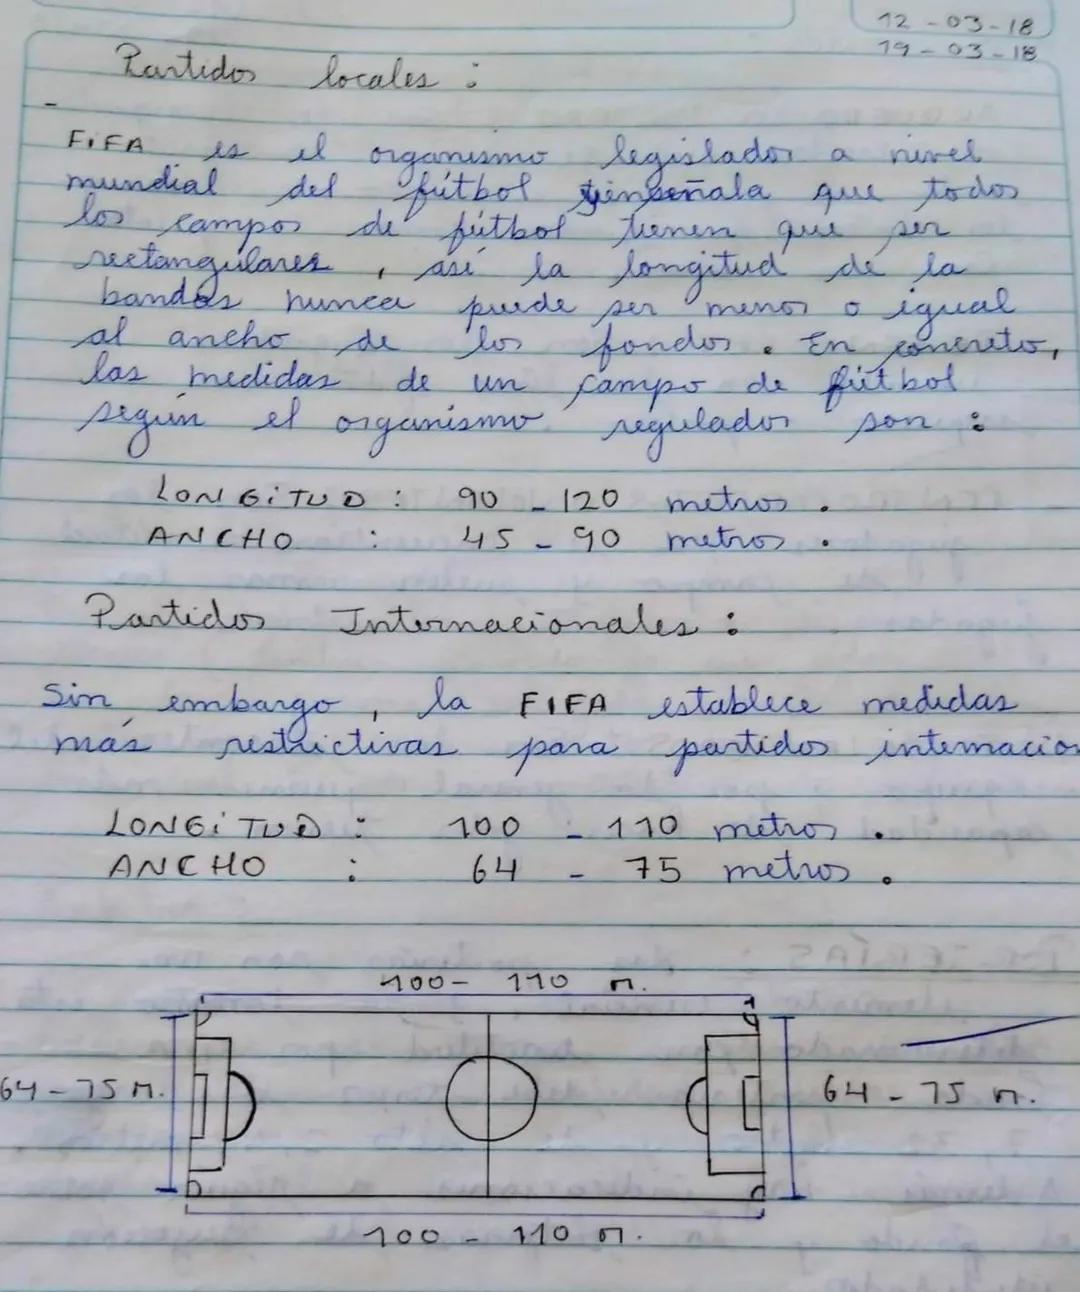 12-03-18
19-03-18
Partidos locales :
-
FiFA es el organismo legislador a nivel
mundial del fútbol señala que todos
los campos de fútbol tienen que ser
rectangulares, así la longitud de la
bandas nunca puede ser menor o igual
al ancho de los fondos. En concreto,
las medidas de un campo de fútbol
según el organismo regulador son :
LONGiTUD : 90 - 120 metros.
ANCHO : 45 - 90 metros.
Partidos Internacionales :
Sin embargo, la FIFA establece medidas
más restrictivas para partidos internacion
LONGiTUD : 100 - 110 metros.
ANCHO : 64 - 75 metros.
100 - 110 m.
64 - 75 m.
64 - 75 m.
100 - 110 m.